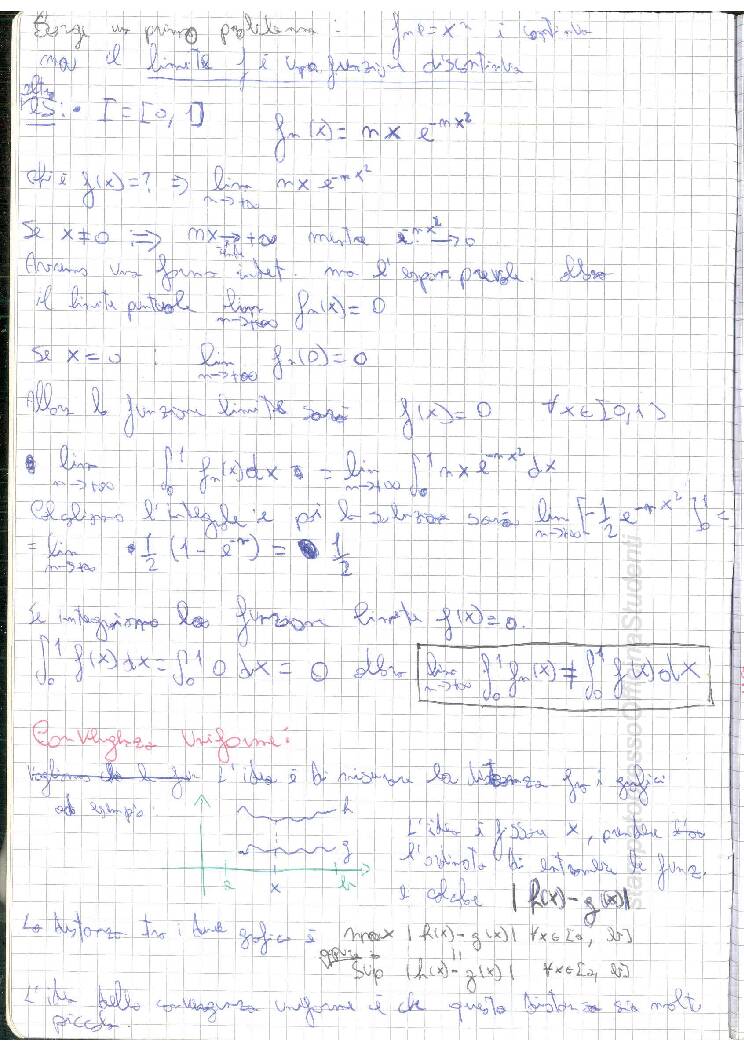 Sorge un primo problema : fn(x)=x^n è continua
ma il limite f è una funzione discontinua
altro
ES: • I = [0, 1] fn(x) = nx e^{-nx²}
Chi è f(x)=? ⇒ lim n→+∞ nx e^{-nx²}
Se x≠0 ⇒ nx → +∞ mentre e^{-nx²} → 0
Avremo una forma indet. ma l'espon. prevale. Allora
il limite puntuale lim n→+∞ fn(x) = 0
Se x = 0 : lim n→+∞ fn(0) = 0
Allora la funzione limite sarà f(x) = 0 ∀x∈[0,1]
• lim n→+∞ ∫₀¹ fn(x)dx = lim n→+∞ ∫₀¹ nx e^{-nx²} dx
l'integrale e poi la soluzione sarà lim n→+∞ [-1/2 e^{-nx²}]₀¹ =
= lim n→+∞ 1/2 (1 - e^{-n}) = 1/2
Se integriamo la funzione limite f(x)=0.
∫₀¹ f(x)dx = ∫₀¹ 0 dx = 0 allora lim n→+∞ ∫₀¹ fn(x) ≠ ∫₀¹ f(x)dx
Convergenza Uniforme:
L'idea è di misurare la distanza fra i grafici
ad esempio:
h
g
a x b
L'idea è fissare x, prendere
l'ordinata di entrambe le funz.
e calcolare |h(x) - g(x)|
La distanza tra i due grafici è max |h(x) - g(x)| ∀x∈[a, b]
oppure
=
Sup |h(x) - g(x)| ∀x∈[a, b]
L'idea della convergenza uniforme è che questa distanza sia molto
piccola.
staappatodacessoOfficinaStudenti